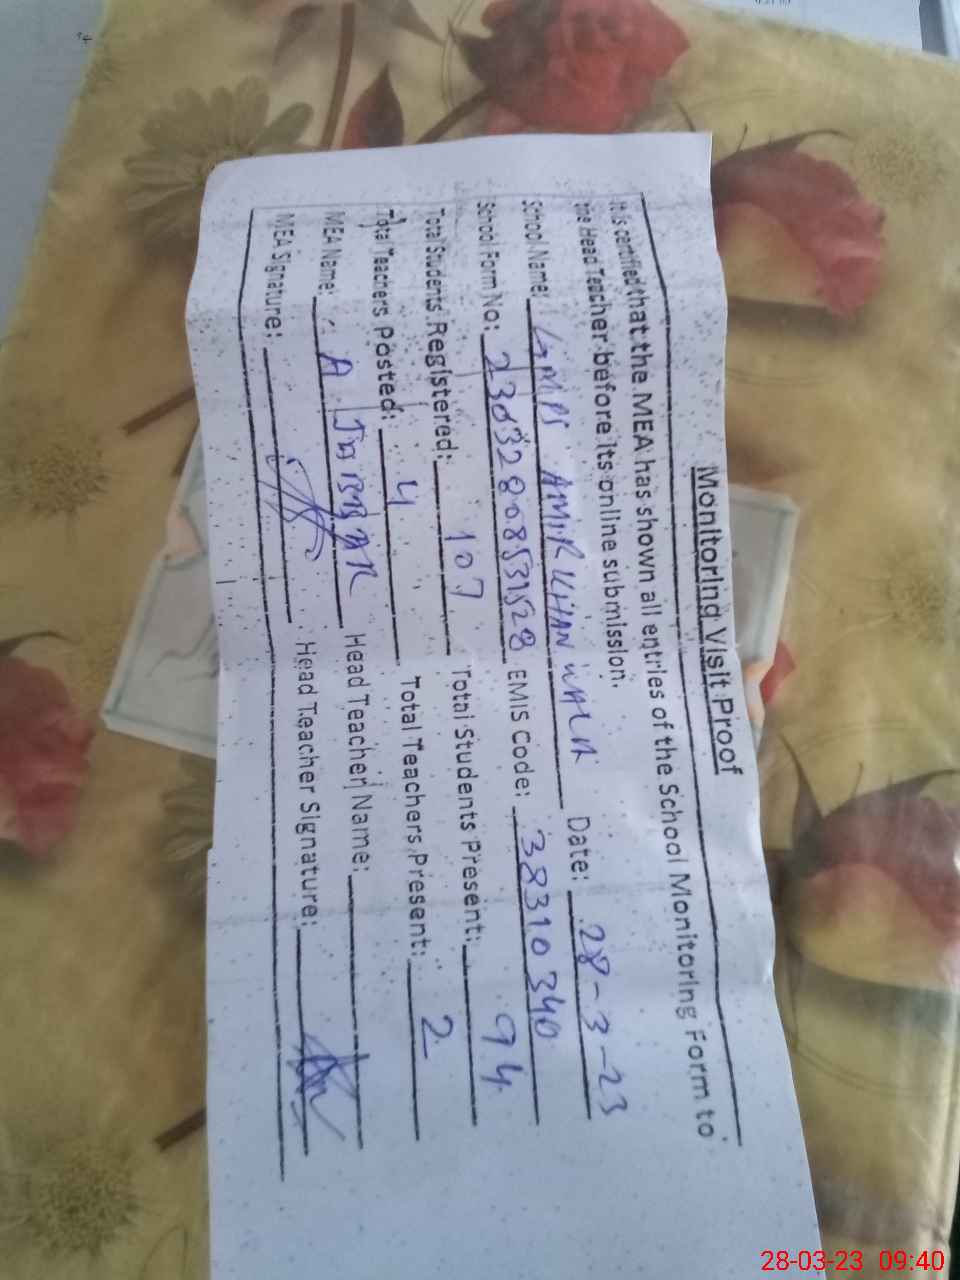 Monitoring Visit Proof
It is certified that the MEA has shown all entries of the School Monitoring Form to
the Head Teacher before its online submission.
School Name: GMPS AMIR KHAN WALA Date: 28-3-23
School Form No: EMIS Code: 38310340
Total Students Registered: 107 Total Students Present: 94
Total Teachers Posted: 4 Total Teachers Present: 2
MEA Name: A. JABBAR Head Teacher Name:
MEA Signature: Head Teacher Signature:
28-03-23 09:40